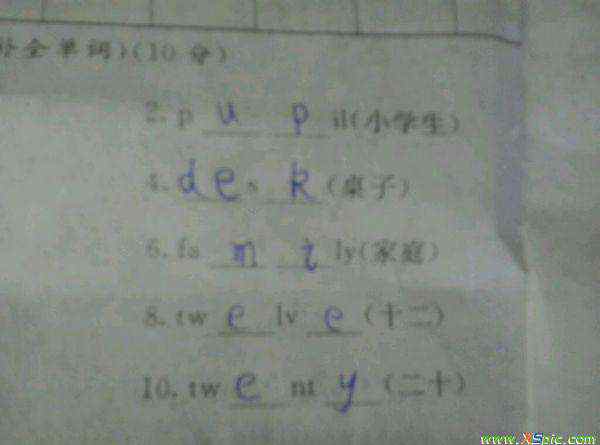 补全单词)(10分)
2. p u p il(小学生)
4. d e s k (桌子)
6. fa m i ly(家庭)
8. tw e lv e (十二)
10. tw e nt y (二十)
www.XSpic.com